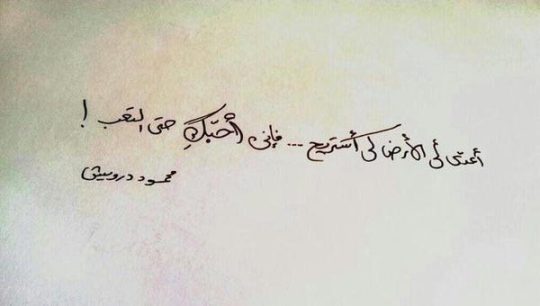 أعدّي لي الأرض كي أستريح ... فإني أحبّكِ حتى التعب !
محمود درويش